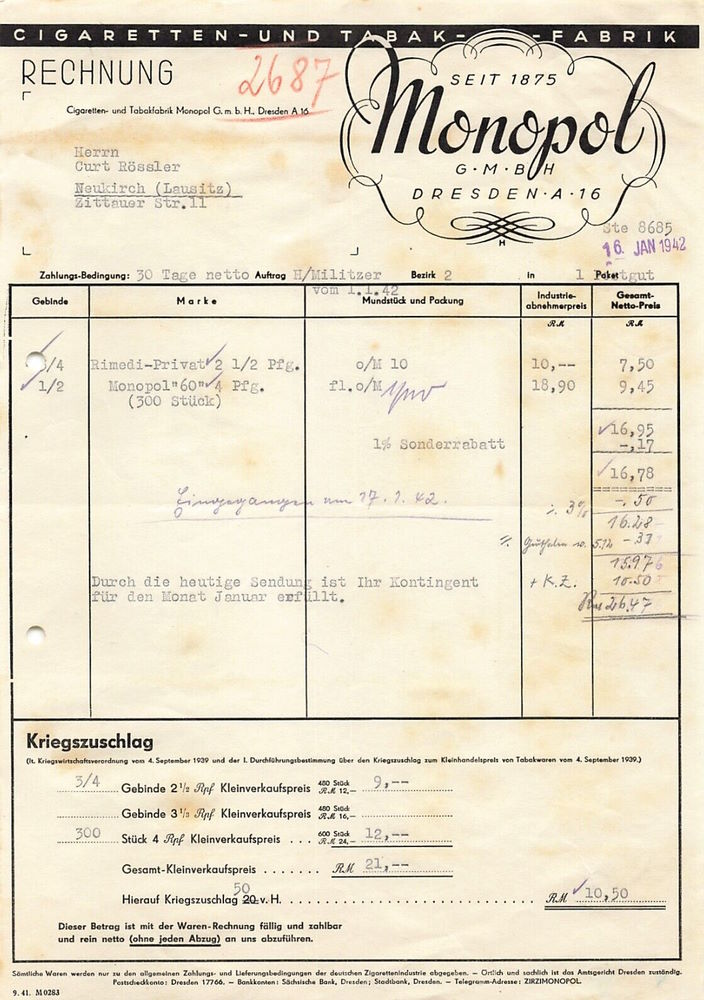 CIGARETTEN-UND TABAK-FABRIK
RECHNUNG
2687
SEIT 1875
Monopol
G·M·B·H
DRESDEN·A·16
Cigaretten- und Tabakfabrik Monopol G. m. b. H., Dresden A 16
Herrn
Curt Rössler
Neukirch (Lausitz)
Zittauer Str.11
Ste 8685
16. JAN 1942
Zahlungs-Bedingung: 30 Tage netto Auftrag H/Militzer Bezirk 2 in 1 Paket
vom 1.1.42
Gebinde Marke Mundstück und Packung Industrie-abnehmerpreis Gesamt-Netto-Preis
RM RM
3/4 Rimedi-Privat 2 1/2 Pfg. o/M 10 10,-- 7,50
1/2 Monopol"60" 4 Pfg. fl.o/M 18,90 9,45
(300 Stück)
16,95
1% Sonderrabatt -,17
16,78
Eingegangen am 17.1.42. ./. 3% -.50
16.28
-.33
15.97
Durch die heutige Sendung ist Ihr Kontingent + K.Z. 10.50
für den Monat Januar erfüllt. 26.47
Kriegszuschlag
(lt. Kriegswirtschaftsverordnung vom 4. September 1939 und der I. Durchführungsbestimmung über den Kriegszuschlag zum Kleinhandelspreis von Tabakwaren vom 4. September 1939.)
3/4 Gebinde 2½ Rpf Kleinverkaufspreis 480 Stück RM 12,— 9,--
Gebinde 3½ Rpf Kleinverkaufspreis 480 Stück RM 16,—
300 Stück 4 Rpf Kleinverkaufspreis . . . 600 Stück RM 24,— 12,--
Gesamt-Kleinverkaufspreis . . . . . . . RM 21,--
50
Hierauf Kriegszuschlag 20 v. H. RM 10,50
Dieser Betrag ist mit der Waren-Rechnung fällig und zahlbar
und rein netto (ohne jeden Abzug) an uns abzuführen.
Sämtliche Waren werden nur zu den allgemeinen Zahlungs- und Lieferungsbedingungen der deutschen Zigarettenindustrie abgegeben. — Örtlich und sachlich ist das Amtsgericht Dresden zuständig.
Postscheckkonto: Dresden 17766. — Bankkonten: Sächsische Bank, Dresden; Stadtbank, Dresden. — Telegramm-Adresse: ZIRZIMONOPOL.
9. 41. M 0283